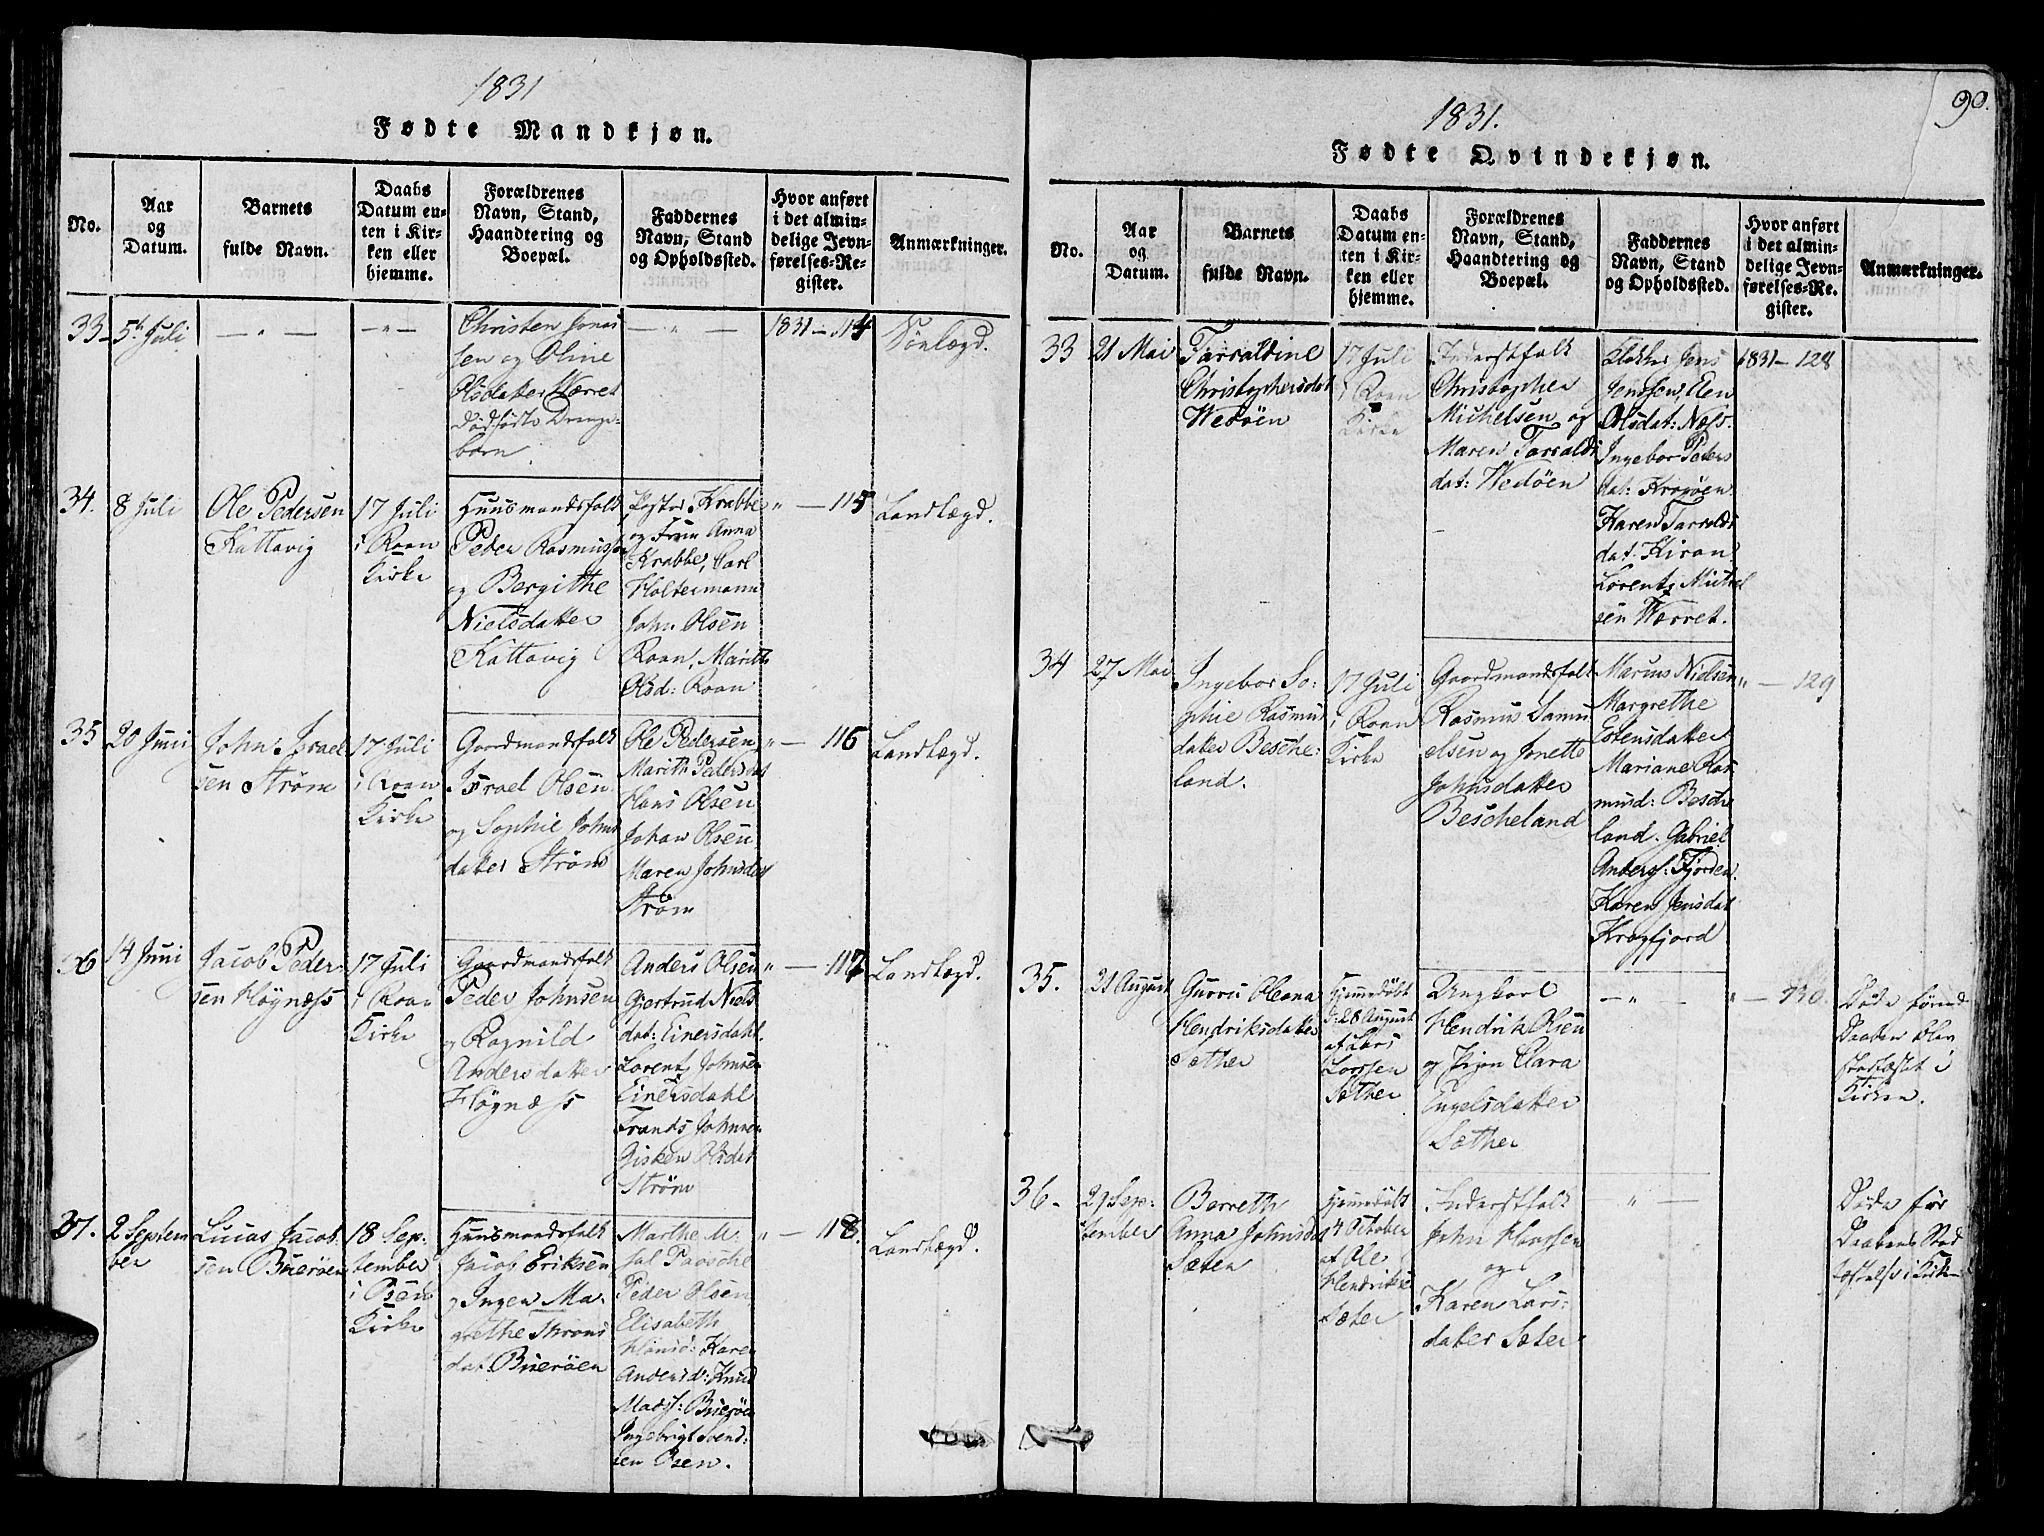 1831
Fødte Mandkjøn.
No.
Aar
og
Datum.
Barnets
fulde Navn.
Daabs
Datum en-
ten i Kir-
ken eller
hjemme.
Forældrenes
Navn, Stand,
Haandtering og
Boepæl.
Faddernes
Navn, Stand
og Opholdssted.
Hvor anført
i det almin-
delige Jevn-
førelses-Re-
gister.
Anmærkninger.
33
5te Juli
— " —
— " —
Christen Jonas
sen og Oline
Olsdatter Værret
dødfødte Drenge-
barn.
— " —
1831 — 114
34.
8 Juli
Ole Pedersen
Kattavig
17 Juli
i Roan
Kirke
Huusmandsfolk
Peder Rasmussen
og Bergithe
Nielsdatter
Kattavig
Pastor Krabbe
og Frue Anna
Krabbe, Carl
Holtermann
John Olsen
Roan, Marith
Olsd: Roan
" — 115
Landlægd.
35
20 Juni
John Israel
sen Strøm
17 Juli
i Roan
Kirke
Gaardmandsfolk
Israel Olsen
og Sophie Johns
datter Strøm
Ole Pedersen
Marith Pedersdat
Hans Olsen
Johan Olsen
Maren Johnsdat
Strøm
" — 116
Landlægd.
36
14 Juni
Jacob Peder-
sen Høgnæss
17 Juli
i Roan
Kirke
Gaardmandsfolk
Peder Johnsen
og Ragnild
Andersdatter
Høgnæss
Anders Olsen
Gjertrud Niels
dat: Einersdahl.
Lorents Johnsen
Einersdahl
Frands Johnsen
Gisken Olsdat
Strøm
" — 117
Landlægd.
37.
2 Septem
ber
Lucas Jacob-
sen Buerøen
18 Sep-
tember
i Osen
Kirke
Huusmandsfolk
Jacob Eriksen
og Ingen Ma-
grethe
dat: Buerøen
Marthe M.
Sal Paasche
Peder Olsen
Elisabeth
Hansd: Karen
Andersd: Knud
Mads: Buerøen
Ingebrigt Svend-
sen Osen.
" — 118.
Landlægd.
90.
1831.
Fødte Qvindekjøn.
No.
Aar
og
Datum.
Barnets
fulde Navn.
Daabs
Datum en-
ten i Kir-
ken eller
hjemme.
Forældrenes
Navn, Stand,
Haandtering og
Boepæl.
Faddernes
Navn, Stand
og Opholdssted.
Hvor anført
i det almin-
delige Jevn-
førelses-Re-
gister.
Anmærkninger.
33
21 Mai
Tarraldine
Christophersdat
Wedöen
17 Juli
i Roan
Kirke
Inderstfolk
Christopher
Michelsen og
Maren Tarralds
dat: Wedöen
Klokker Jens
Jenssen, Elen
Olsdat: Næss.
Ingebor Peders
dat: Kragöen
Karen Tarralds
dat: Kiran
Lorents Michel
sen Værret.
1831 — 128
34
27 Mai
Ingebor So-
phie Rasmus
datter Besche-
land.
17 Juli
i Roan
Kirke
Gaardmandsfolk
Rasmus Samu
elsen og Jonette
Johnsdatter
Bescheland
Marcus Nielsen
Margrethe
Estensdatter
Mariane Ras
musd: Besche
land. Gabriel
Anders: Fjorden.
Karen Jensdat
Kragfjord
" — 129
35.
21 August
Gurru Oleana
Hendriksdatter
Sæther
Hjemmedöbt
d: 28 August
af Lars
Larssen
Sæther
Ungkarl
Hendrik Olsen
og Pigen Clara
Engelsdatter
Sæther
— " —
" — 130.
Döde förend
Daaben blev
stadfæstet i
Kirken.
36 -
29 Sep-
tember
Berreth
Anna Johnsdat
Sæter
Hjemmedöbt
4 October
af Ole
Hendriks
Sæter
Inderstfolk
John Hanssen
og
Karen Lars-
datter Sæter
" —
Döde för
Daabens Stad
fæstelse i Kirken